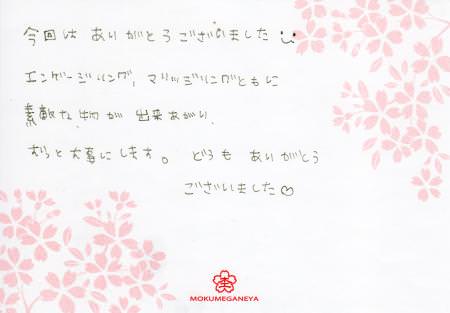 今回は ありがとうございました
エンゲージリング, マリッジリングともに
素敵な物が 出来あがり,
ずっと大事にします。 どうも ありがとう
ございました♡
MOKUMEGANEYA